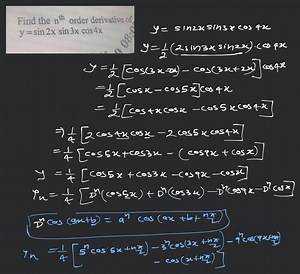 Find the nth order derivative of
y = sin 2x sin 3x cos 4x
y = sin2x sin3x cos 4x
y = 1/2 (2 sin3x sin2x) cos 4x
y = 1/2 [cos(3x-2x) - cos(3x+2x)] cos4x
= 1/2 [cosx - cos5x] cos4x
= 1/2 [cos4x cosx - cos5x cos4x]
⇒ 1/4 [2 cos4x cosx - 2 cos5x cos4x]
= 1/4 [cos5x + cos3x - (cos9x + cosx)]
y = 1/4 [cos5x + cos3x - cos9x - cosx]
yn = 1/4 [Dⁿ(cos5x) + Dⁿ(cos3x) - Dⁿcos9x - Dⁿcosx]
Dⁿ cos (ax+b) = aⁿ cos (ax + b + nπ/2)
yn = 1/4 [5ⁿ cos(5x + nπ/2) - 3ⁿ cos(3x + nπ/2) - 9ⁿ cos(9x + nπ/2)
- cos(x + nπ/2)]